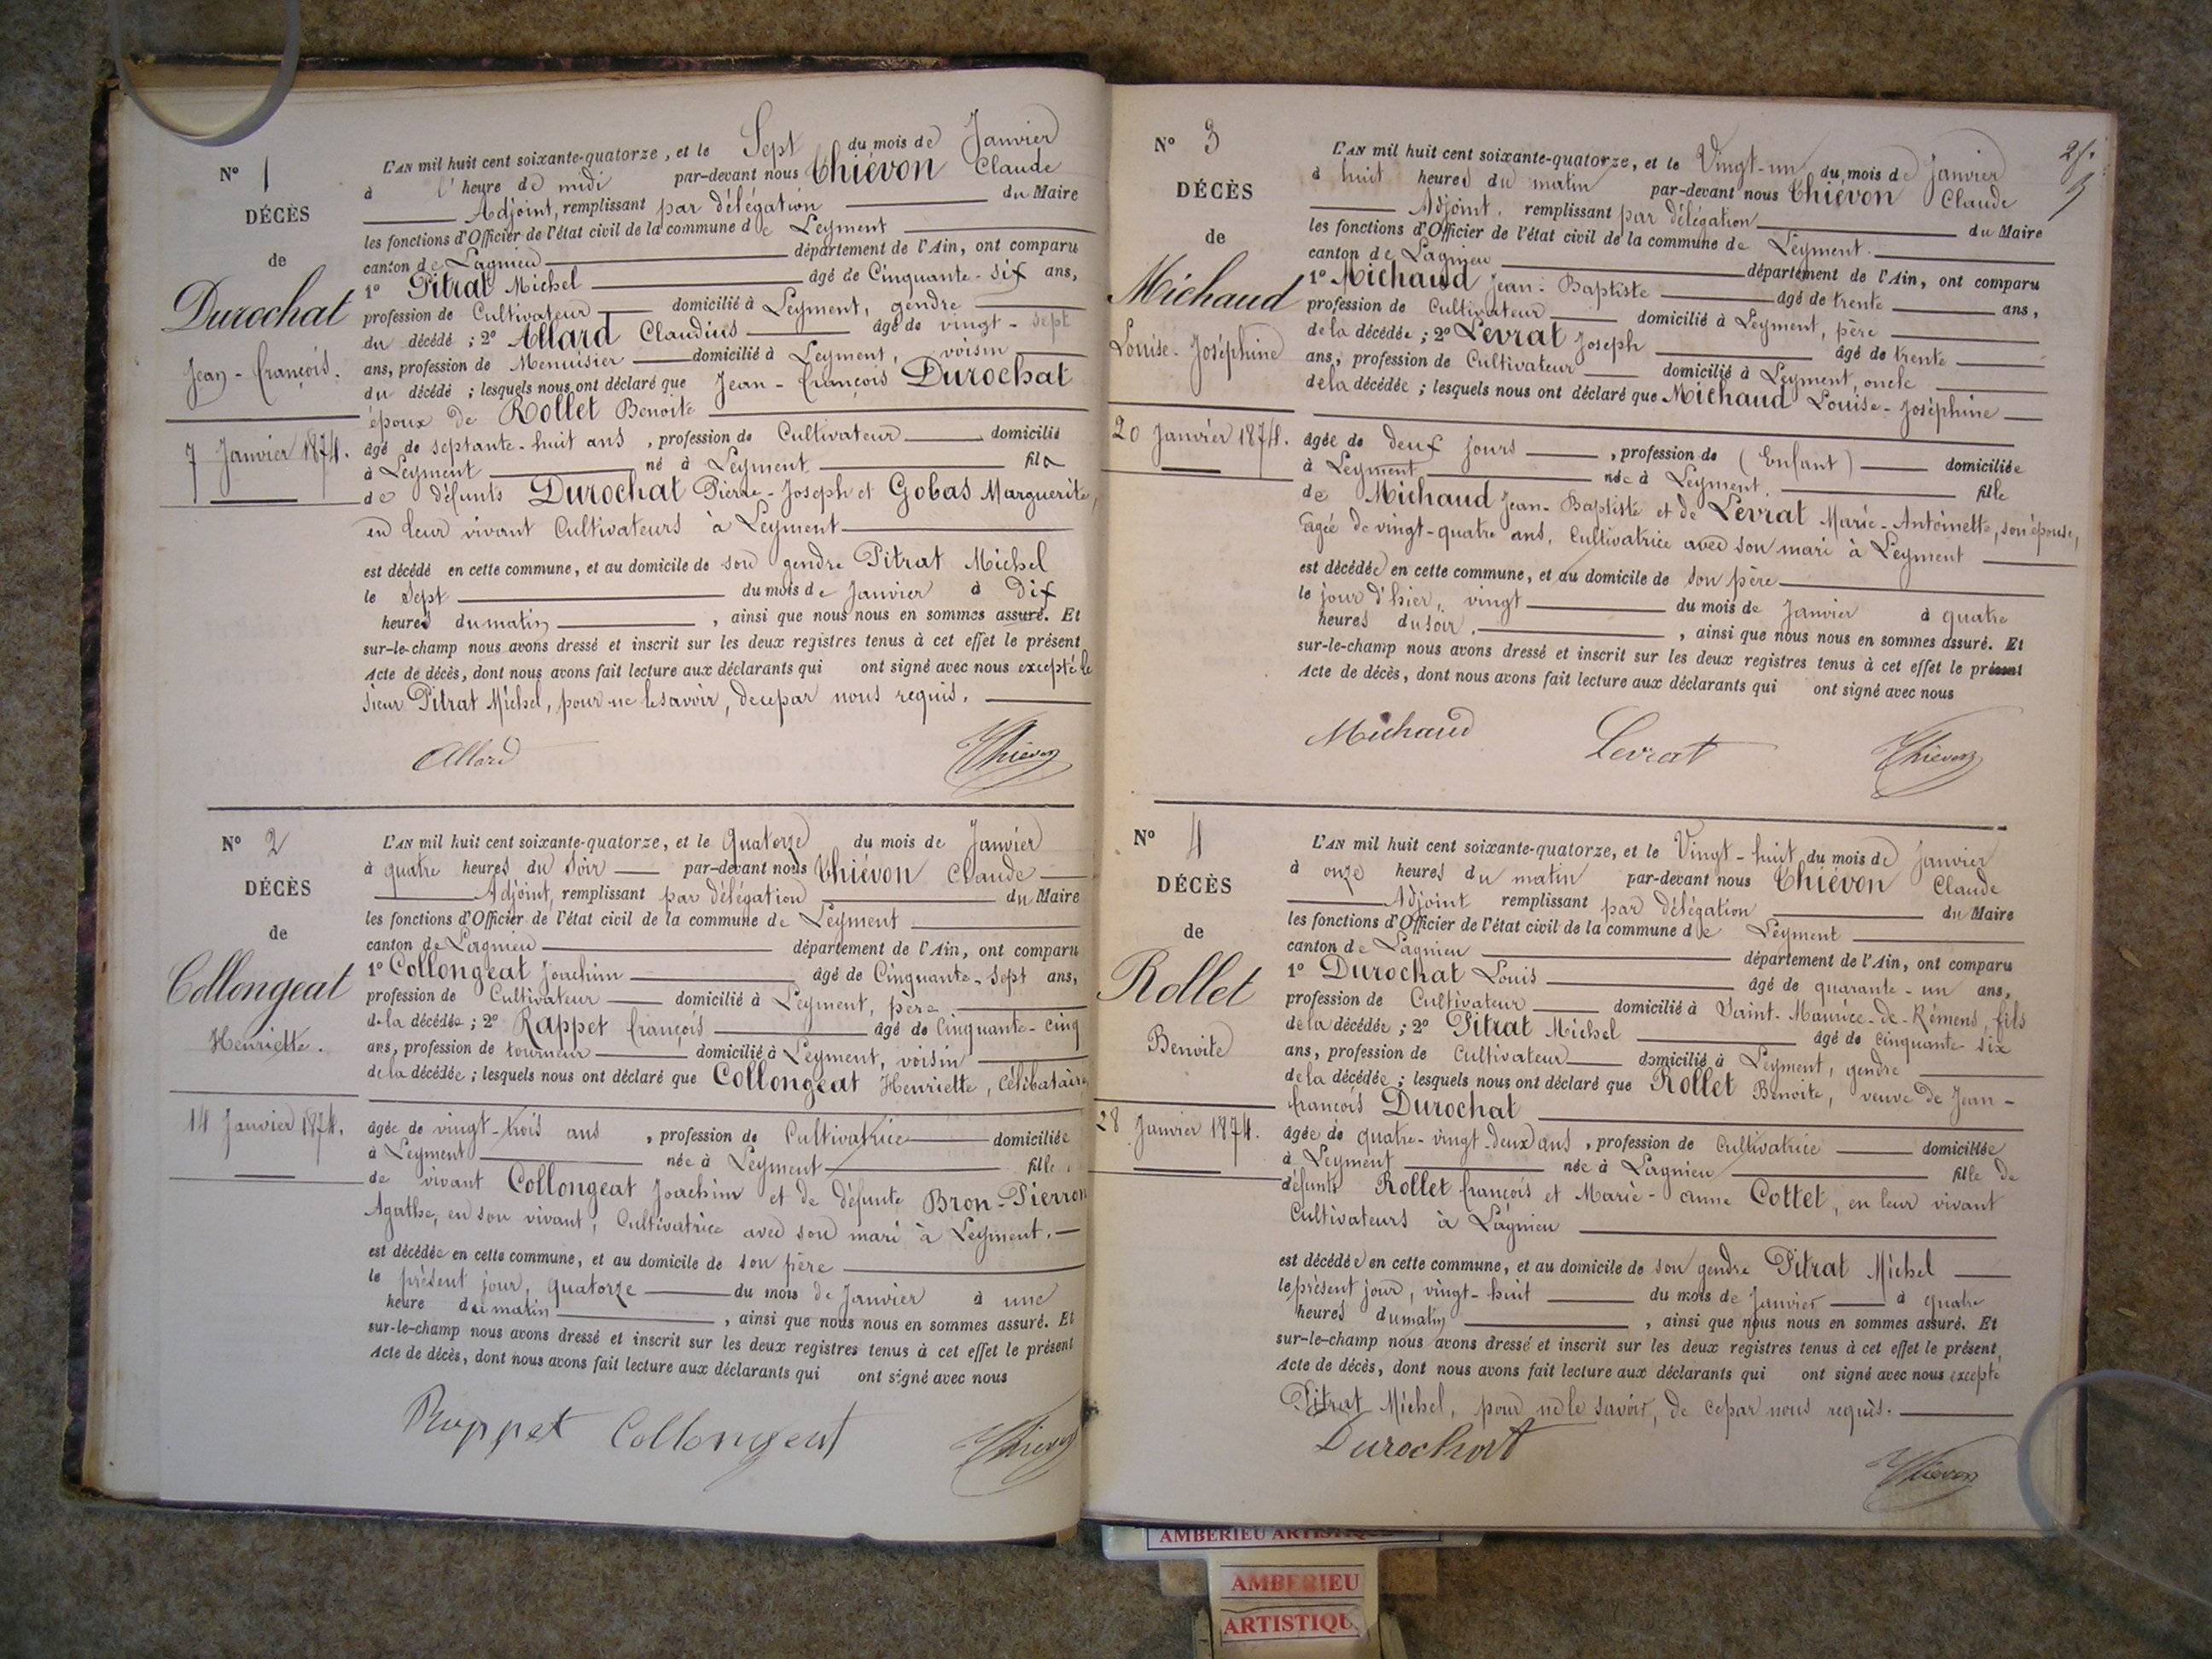 N° 1
DÉCÈS
de
Durochat
Jean-François.
7 Janvier 1874.
L'AN mil huit cent soixante-quatorze, et le Sept du mois de Janvier
à l'heure de midi par-devant nous Thiévon Claude
Adjoint, remplissant par délégation du Maire
les fonctions d'Officier de l'état civil de la commune de Leyment
canton de Lagnieu département de l'Ain, ont comparu
1° Pitrat Michel âgé de Cinquante-six ans,
profession de Cultivateur domicilié à Leyment, gendre
du décédé ; 2° Allard Claudius âgé de vingt-sept
ans, profession de Menuisier domicilié à Leyment, voisin
du décédé ; lesquels nous ont déclaré que Jean-François Durochat
époux de Rollet Benoite
âgé de septante-huit ans, profession de Cultivateur domicilié
à Leyment né à Leyment fils
de défunts Durochat Pierre-Joseph et Gobas Marguerite,
en leur vivant Cultivateurs à Leyment
est décédé en cette commune, et au domicile de son gendre Pitrat Michel
le sept du mois de Janvier à dix
heures du matin, ainsi que nous nous en sommes assuré. Et
sur-le-champ nous avons dressé et inscrit sur les deux registres tenus à cet effet le présent
Acte de décès, dont nous avons fait lecture aux déclarants qui ont signé avec nous excepté le
sieur Pitrat Michel, pour ne le savoir, de ce par nous requis.
Allard Thiévon
N° 2
DÉCÈS
de
Collongeat
Henriette.
14 Janvier 1874.
L'AN mil huit cent soixante-quatorze, et le Quatorze du mois de Janvier
à quatre heures du soir par-devant nous Thiévon Claude
Adjoint, remplissant par délégation du Maire
les fonctions d'Officier de l'état civil de la commune de Leyment
canton de Lagnieu département de l'Ain, ont comparu
1° Collongeat Joachim âgé de Cinquante-sept ans,
profession de Cultivateur domicilié à Leyment, père
de la décédée ; 2° Rappet François âgé de Cinquante-cinq
ans, profession de tourneur domicilié à Leyment, voisin
de la décédée ; lesquels nous ont déclaré que Collongeat Henriette, Célibataire
âgée de vingt-trois ans, profession de Cultivatrice domiciliée
à Leyment née à Leyment fille
de vivant Collongeat Joachim et de défunte Bron-Pierron
Agathe, en son vivant, Cultivatrice avec son mari à Leyment.
est décédée en cette commune, et au domicile de son père
le présent jour, quatorze du mois de Janvier à une
heure du matin, ainsi que nous nous en sommes assuré. Et
sur-le-champ nous avons dressé et inscrit sur les deux registres tenus à cet effet le présent
Acte de décès, dont nous avons fait lecture aux déclarants qui ont signé avec nous
Rappet Collongeat Thiévon
N° 3
DÉCÈS
de
Michaud
Louise-Joséphine
20 Janvier 1874.
L'AN mil huit cent soixante-quatorze, et le Vingt-un du mois de Janvier
à huit heures du matin par-devant nous Thiévon Claude
Adjoint, remplissant par délégation du Maire
les fonctions d'Officier de l'état civil de la commune de Leyment.
canton de Lagnieu département de l'Ain, ont comparu
1° Michaud Jean-Baptiste âgé de trente ans,
profession de Cultivateur domicilié à Leyment, père
de la décédée ; 2° Levrat Joseph âgé de trente
ans, profession de Cultivateur domicilié à Leyment, oncle
de la décédée ; lesquels nous ont déclaré que Michaud Louise-Joséphine
âgée de deux jours, profession de (Enfant) domiciliée
à Leyment née à Leyment. fille
de Michaud Jean-Baptiste et de Levrat Marie-Antoinette, son épouse,
âgée de vingt-quatre ans, Cultivatrice avec son mari à Leyment
est décédée en cette commune, et au domicile de son père
le jour d'hier, vingt du mois de Janvier à quatre
heures du soir, ainsi que nous nous en sommes assuré. Et
sur-le-champ nous avons dressé et inscrit sur les deux registres tenus à cet effet le présent
Acte de décès, dont nous avons fait lecture aux déclarants qui ont signé avec nous
Michaud Levrat Thiévon
N° 4
DÉCÈS
de
Rollet
Benoite
28 Janvier 1874.
L'AN mil huit cent soixante-quatorze, et le Vingt-huit du mois de Janvier
à onze heures du matin par-devant nous Thiévon Claude
Adjoint remplissant par délégation du Maire
les fonctions d'Officier de l'état civil de la commune de Leyment
canton de Lagnieu département de l'Ain, ont comparu
1° Durochat Louis âgé de quarante-un ans,
profession de Cultivateur domicilié à Saint-Maurice-de-Rémens, fils
de la décédée ; 2° Pitrat Michel âgé de cinquante six
ans, profession de Cultivateur domicilié à Leyment, gendre
de la décédée ; lesquels nous ont déclaré que Rollet Benoite, veuve de Jean-
François Durochat
âgée de quatre-vingt-deux ans, profession de Cultivatrice domiciliée
à Leyment née à Lagnieu fille de
défunts Rollet François et Marie-Anne Cottet, en leur vivant
Cultivateurs à Lagnieu
est décédée en cette commune, et au domicile de son gendre Pitrat Michel
le présent jour, vingt-huit du mois de Janvier à quatre
heures du matin, ainsi que nous nous en sommes assuré. Et
sur-le-champ nous avons dressé et inscrit sur les deux registres tenus à cet effet le présent
Acte de décès, dont nous avons fait lecture aux déclarants qui ont signé avec nous excepté
Pitrat Michel, pour ne le savoir, de ce par nous requis.
Durochat Thiévon
AMBERIEU ARTISTIQUE
AMBERIEU
ARTISTIQU